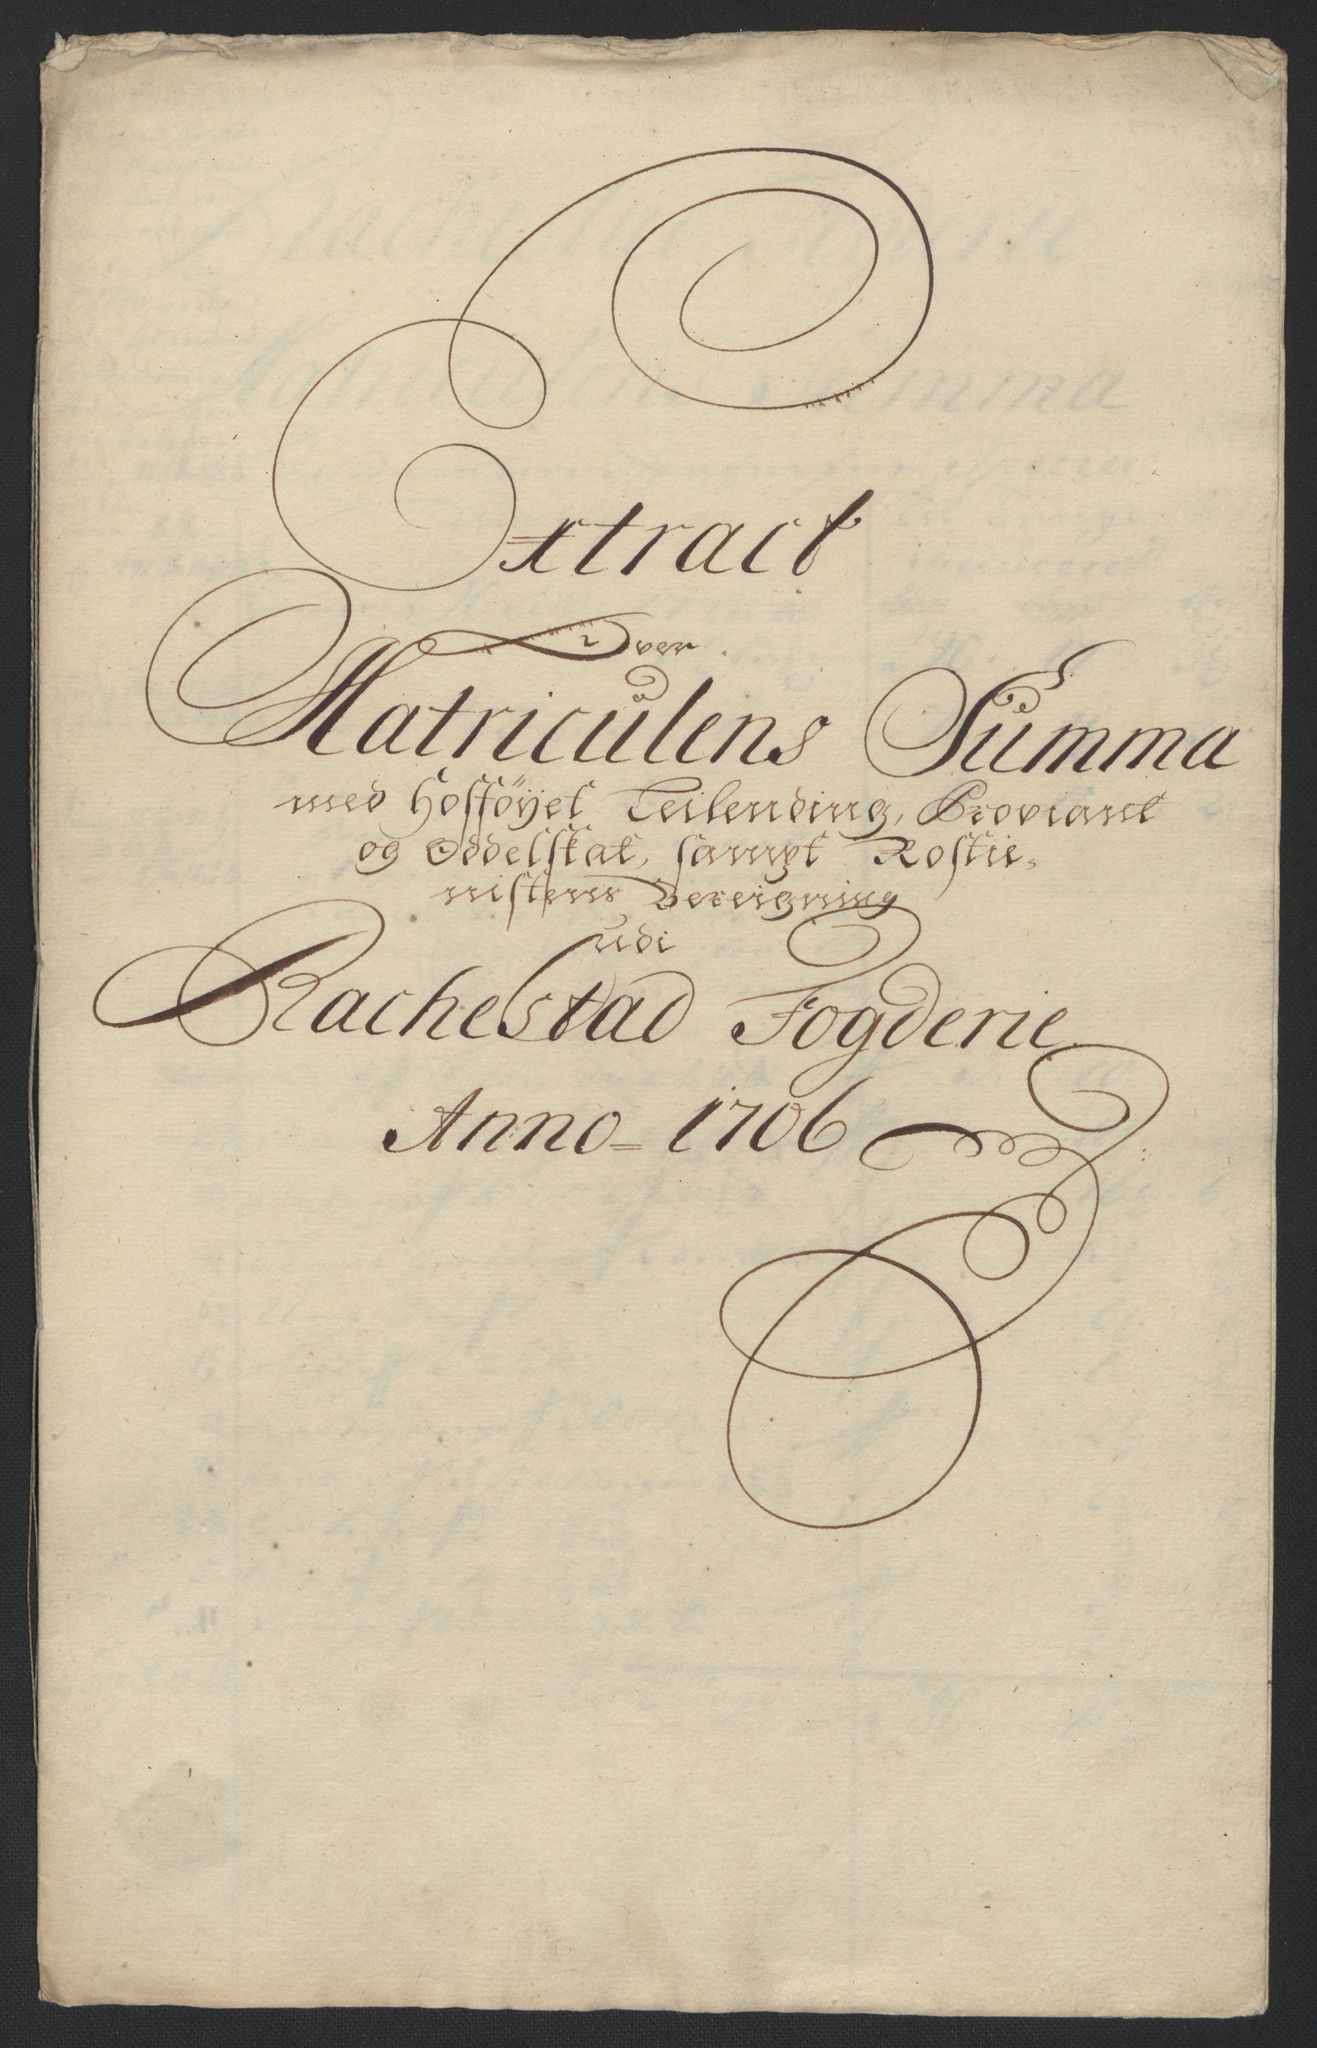 Extract
Over
Matriculens Summa
med hosföyet Leilending, Proviant
og Oddelskat, sampt Rostie-
nistens Bereigning
udi
Rachestad Fogderie
Anno = 1706